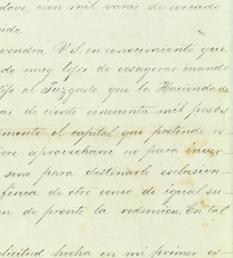 dove, cien mil varas de cercado
vendrá V.S. en conocimiento que
do muy lejos de exagerar cuando
dije al Juzgado que la Hacienda de
as de ciento cincuenta mil pesos
mente el capital que pretende re
iere aprovecharse no para inver
sino para destinarle esclusiva
finca de otro como de igual su
n de pronto la redencion. En tal
licitud hecha en mi primer es